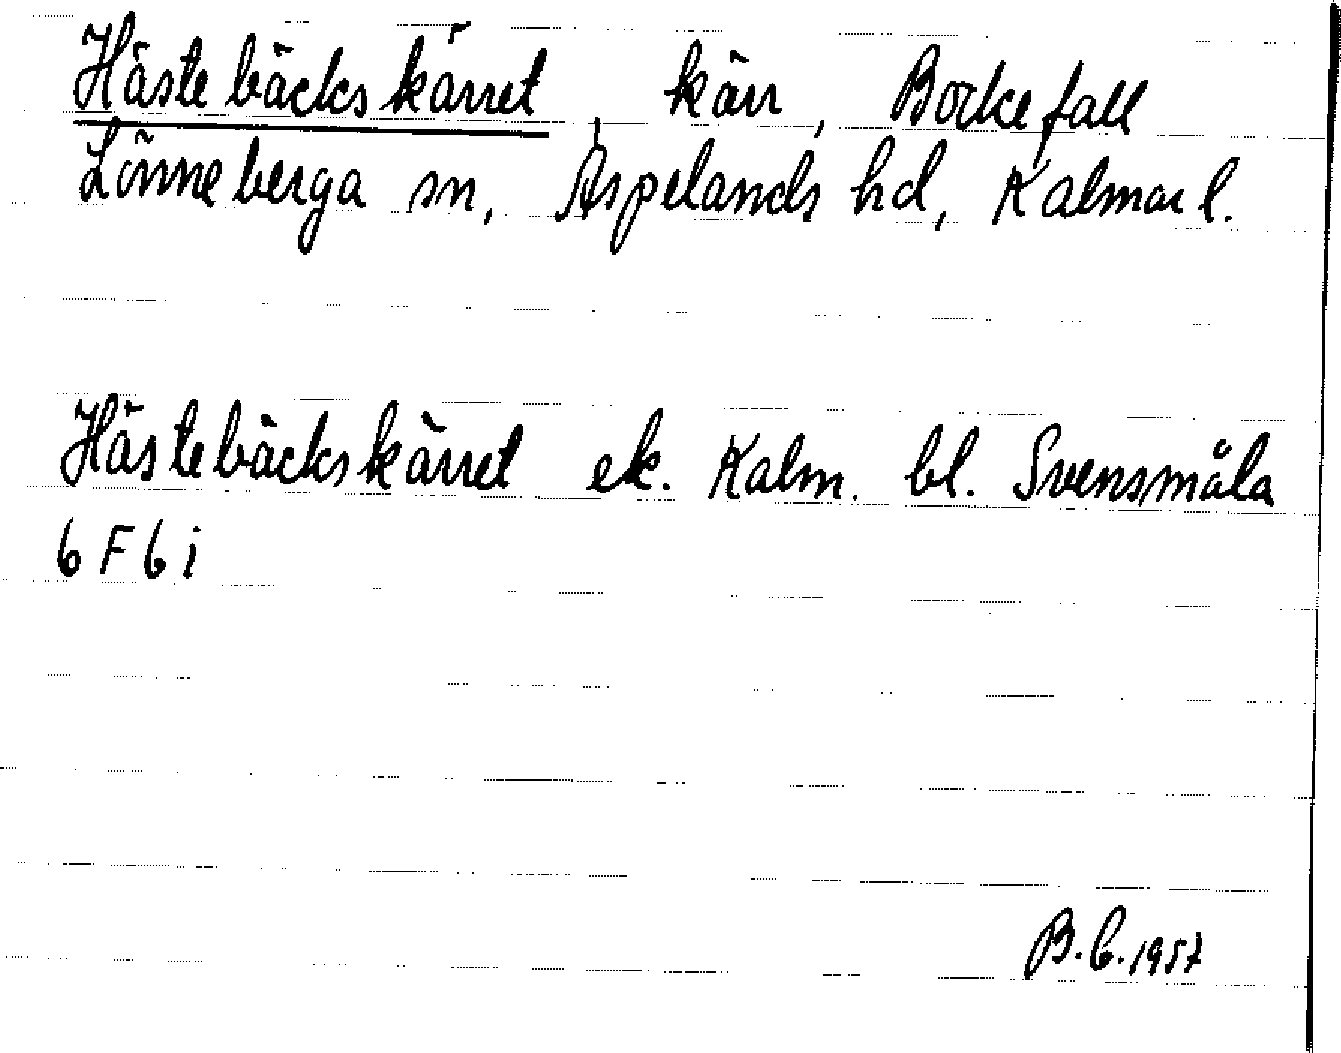 Hästebäckskärret, kärr, Bockefall
Lönneberga sn, Aspelands hd, Kalmar l.
Hästebäckskärret ek. Kalm. bl. Svensmåla
6 F 6 i
B.C. 1957